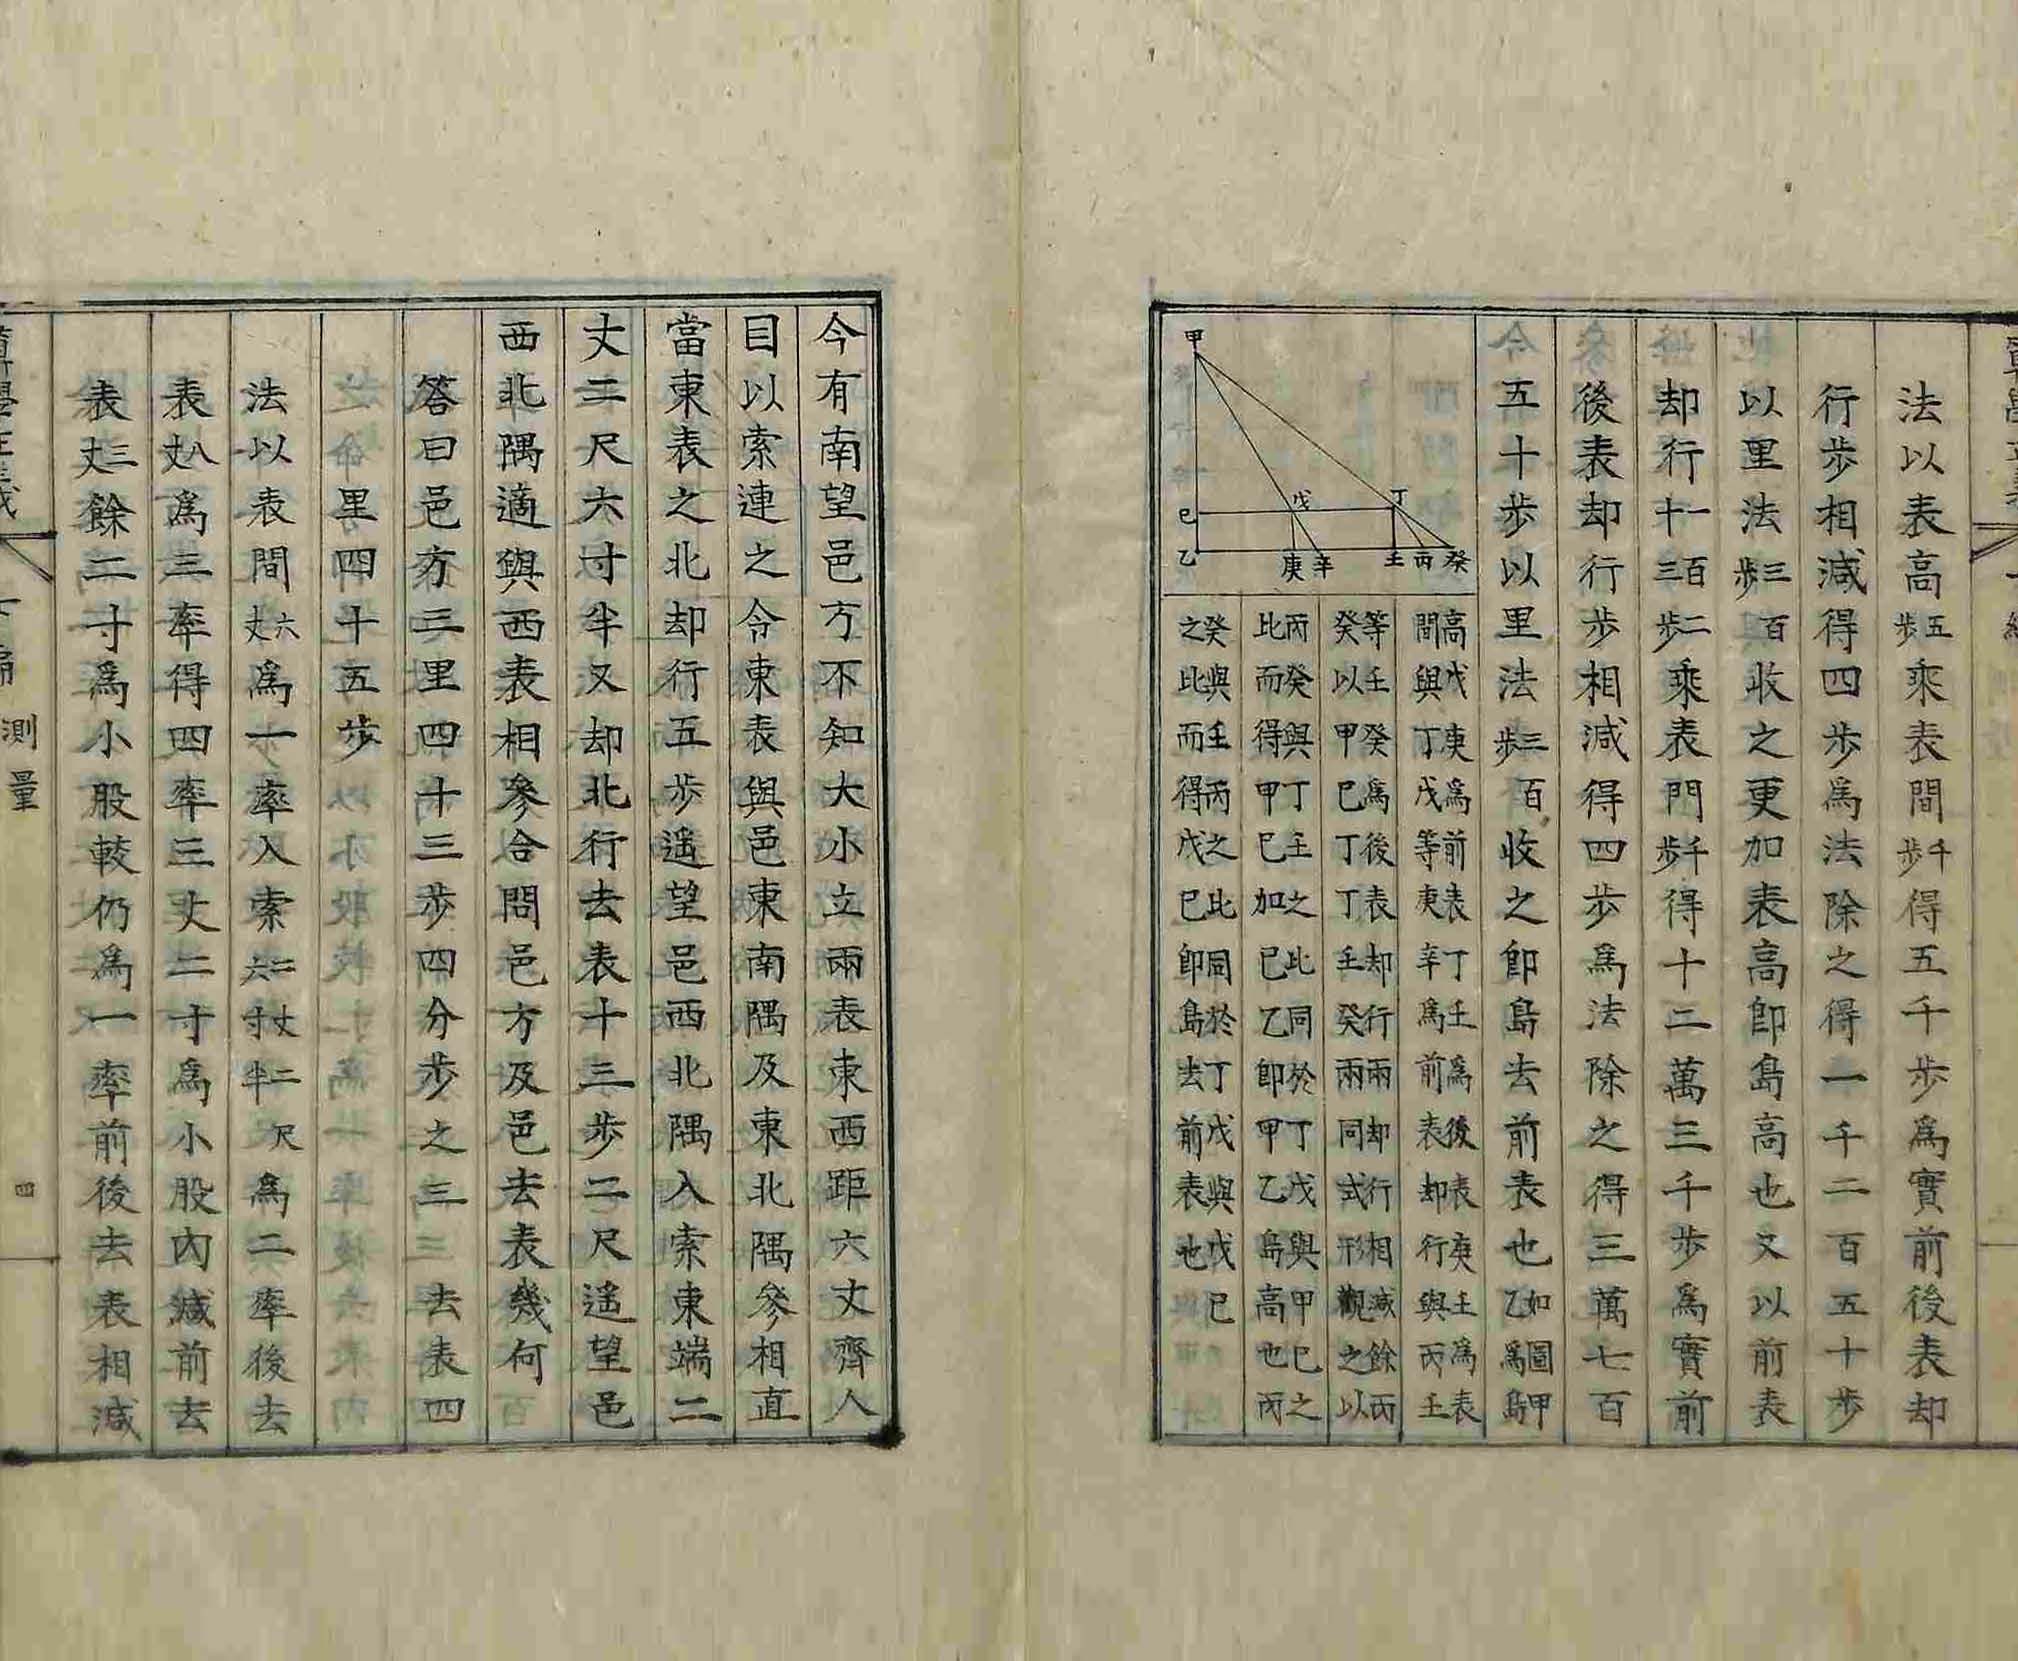 法以表高五步乘表間千步得五千步爲實前後表却
行步相減得四步爲法除之得一千二百五十步
以里法三百步收之更加表高卽島高也又以前表
却行一百二十三步乘表門千步得十二萬三千步爲實前
後表却行步相減得四步爲法除之得三萬七百
五十步以里法三百步收之卽島去前表也如圖甲乙爲島
高戊庚爲前表丁壬爲後表庚壬爲表
間與丁戊等庚辛爲前表却行與丙壬
等壬癸爲後表却行兩却行相減餘丙
癸以甲巳丁丁壬癸兩同式形觀之以
丙癸與丁主之比同於丁戊與甲巳之
比而得甲巳加巳乙卽甲乙島高也丙
癸與壬丙之比同於丁戊與戊巳
之比而得戊巳卽島去前表也
甲
戊
丁
巳
乙
庚
辛
壬
丙
癸
今有南望邑方不知大小立兩表東西距六丈齊人
目以索連之令東表與邑東南隅及東北隅參相直
當東表之北却行五步遙望邑西北隅入索東端二
丈二尺六寸半又却北行去表十三步二尺遙望邑
西北隅適與西表相參合問邑方及邑去表幾何
答曰邑方三里四十三步四分步之三去表四
里四十五步
法以表間六丈爲一率入索二丈二尺六寸半爲二率後去
表八丈爲三率得四率三丈二寸爲小股內減前去
表三丈餘二寸爲小股較仍爲一率前後去表相減
測量
四